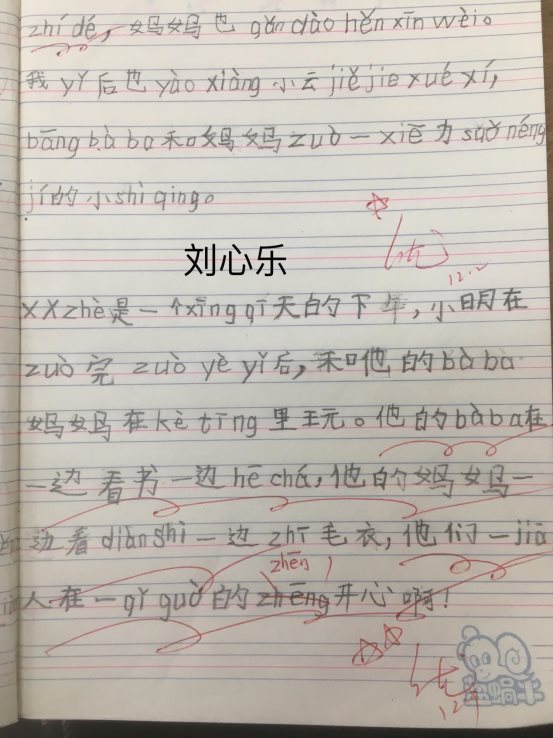 zhí dé，妈妈也 gǎn dào hěn xīn wèi。
我 yǐ 后也 yào xiàng 小云 jiě jie xué xí，
bāng bà ba 和妈妈 zuò 一 xiē 力 suǒ néng
jí 的小 shì qing。
优
12.2
刘心乐
XX zhè 是一个 xīng qī 天的下午，小明在
zuò 完 zuò yè yǐ 后，和他的 bà bà
妈妈在 kè tīng 里玩。他的 bà ba 在
一边看书一边 hē chá，他的妈妈一
边看 diàn shì 一边 zhī 毛衣，他们一 jiā
zhēn
人在一 qǐ guò 的 zhēng 开心啊！
优